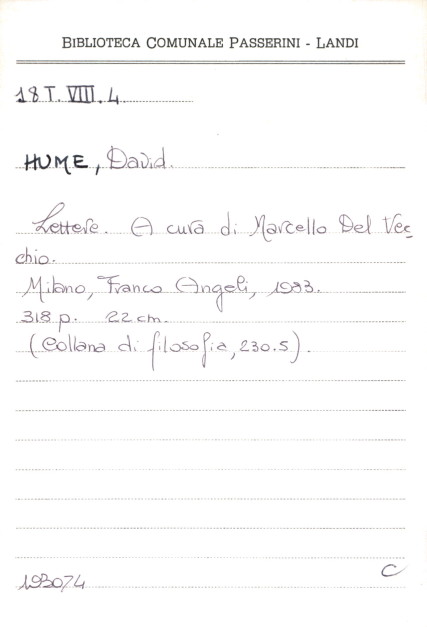 BIBLIOTECA COMUNALE PASSERINI - LANDI
18 T. VIII. 4
HUME, David.
Lettere. A cura di Marcello Del Vec
chio.
Milano, Franco Angeli, 1983.
318 p. 22 cm.
(Collana di filosofia, 230.5).
193074
C